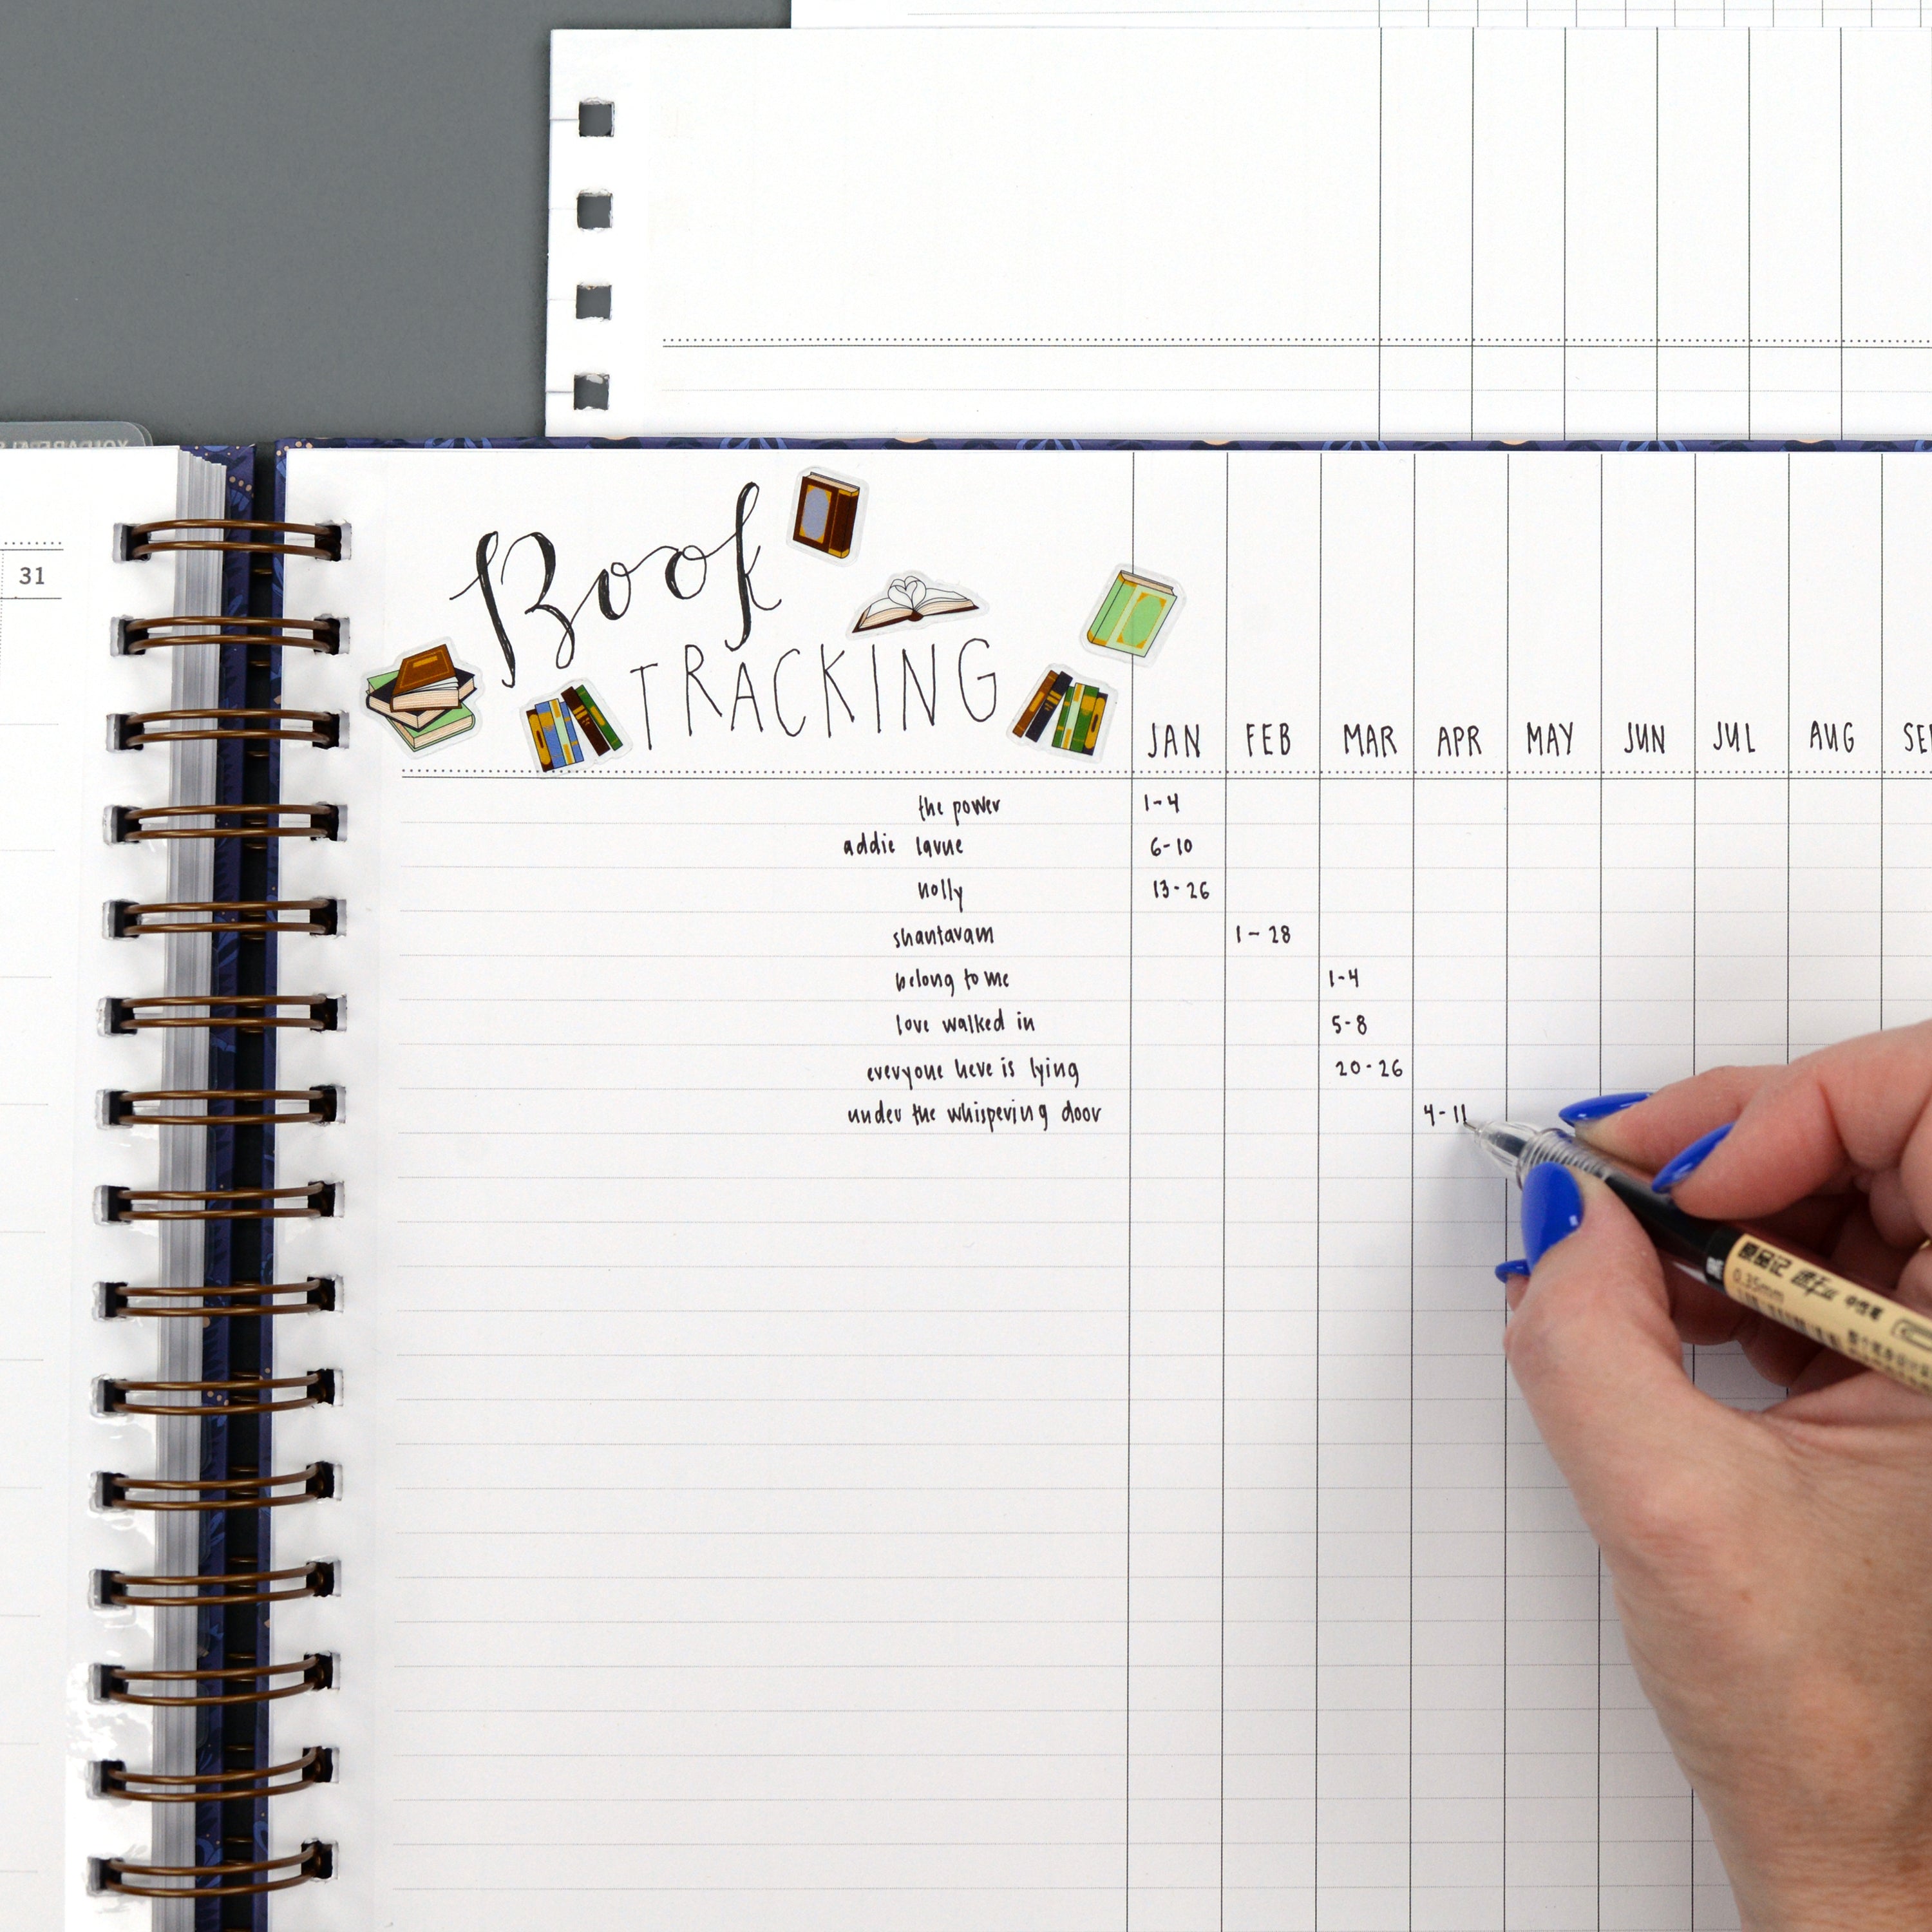 31
Book
TRACKING
JAN FEB MAR APR MAY JUN JUL AUG SE
the power 1-4
addie larue 6-10
holly 13-26
shantaram 1-28
belong to me 1-4
love walked in 5-8
everyone here is lying 20-26
under the whispering door 4-11
0.35mm